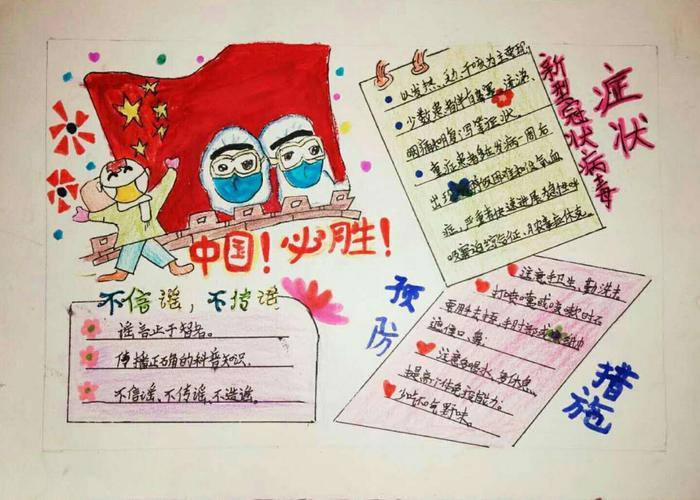 中国！必胜！
不信谣，不传谣
谣言止于智者。
传播正确的科普知识，
不信谣、不传谣、不造谣。
新型冠状病毒
症状
以发热、乏力、干咳为主要表现，
少数患者伴有鼻塞、流涕、
咽痛和腹泻等症状。
重症患者多在发病一周后
出现呼吸困难和低氧血
症，严重者快速进展
预防
措施
注意手卫生，勤洗手
打喷嚏或咳嗽时
遮住口、鼻
注意多喝水、多休息，
提高个体免疫能力。
少吃不吃野味。